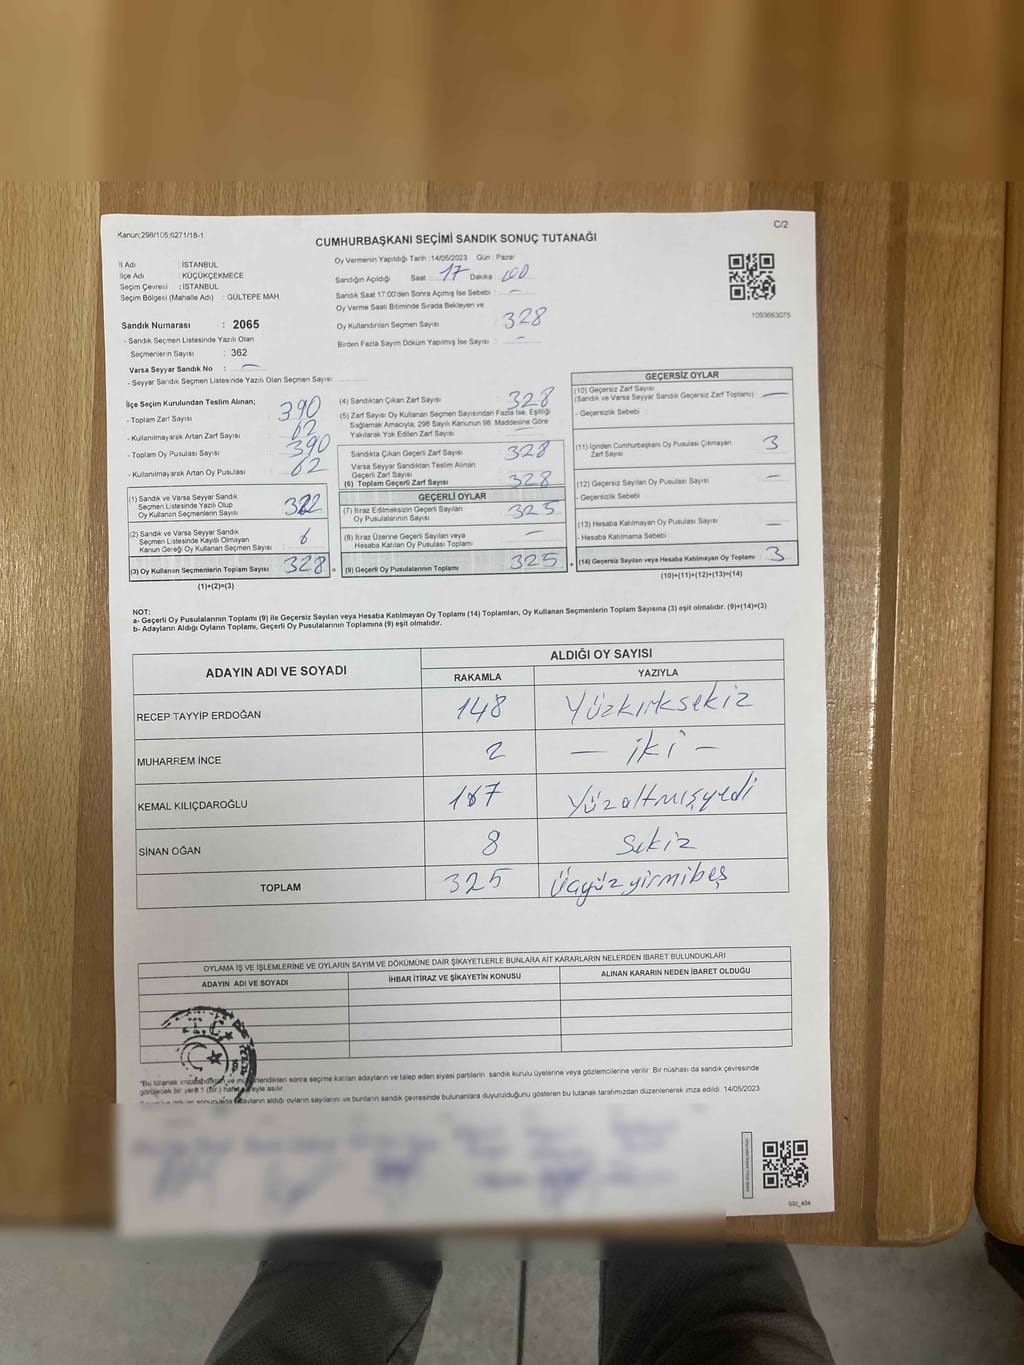 Kanun;298/105;6271/18-1
C/2
CUMHURBAŞKANI SEÇİMİ SANDIK SONUÇ TUTANAĞI
İl Adı : İSTANBUL
İlçe Adı : KÜÇÜKÇEKMECE
Seçim Çevresi : İSTANBUL
Seçim Bölgesi (Mahalle Adı) : GÜLTEPE MAH.
Sandık Numarası : 2065
- Sandık Seçmen Listesinde Yazılı Olan
Seçmenlerin Sayısı : 362
Varsa Seyyar Sandık No : —
- Seyyar Sandık Seçmen Listesinde Yazılı Olan Seçmen Sayısı:
Oy Vermenin Yapıldığı Tarih :14/05/2023 Gün : Pazar
Sandığın Açıldığı Saat : 17 Dakika : 00
Sandık Saat 17.00'den Sonra Açımış İse Sebebi : —
Oy Verme Saati Bitiminde Sırada Bekleyen ve
Oy Kullandırılan Seçmen Sayısı : 328
Birden Fazla Sayım Döküm Yapılmış İse Sayısı : —
1093663075
İlçe Seçim Kurulundan Teslim Alınan;
- Toplam Zarf Sayısı : 390
- Kullanılmayarak Artan Zarf Sayısı : 62
- Toplam Oy Pusulası Sayısı : 390
- Kullanılmayarak Artan Oy Pusulası : 62
(1) Sandık ve Varsa Seyyar Sandık
Seçmen Listesinde Yazılı Olup
Oy Kullanan Seçmenlerin Sayısı 322
(2) Sandık ve Varsa Seyyar Sandık
Seçmen Listesinde Kayıtlı Olmayan
Kanun Gereği Oy Kullanan Seçmen Sayısı 6
(3) Oy Kullanan Seçmenlerin Toplam Sayısı 328
(1)+(2)=(3)
(4) Sandıktan Çıkan Zarf Sayısı : 328
(5) Zarf Sayısı Oy Kullanan Seçmen Sayısından Fazla İse, Eşitliği
Sağlamak Amacıyla; 298 Sayılı Kanunun 98. Maddesine Göre
Yakılarak Yok Edilen Zarf Sayısı :
Sandıkta Çıkan Geçerli Zarf Sayısı : 328
Varsa Seyyar Sandıktan Teslim Alınan
Geçerli Zarf Sayısı
(6) Toplam Geçerli Zarf Sayısı : 328
GEÇERLİ OYLAR
(7) İtiraz Edilmeksizin Geçerli Sayılan
Oy Pusulalarının Sayısı : 325
(8) İtiraz Üzerine Geçerli Sayılan veya
Hesaba Katılan Oy Pusulası Toplamı : —
(9) Geçerli Oy Pusulalarının Toplamı 325
GEÇERSİZ OYLAR
(10) Geçersiz Zarf Sayısı
(Sandık ve Varsa Seyyar Sandık Geçersiz Zarf Toplamı) : —
- Geçersizlik Sebebi :
(11) İçinden Cumhurbaşkanı Oy Pusulası Çıkmayan
Zarf Sayısı : 3
(12) Geçersiz Sayılan Oy Pusulası Sayısı : —
- Geçersizlik Sebebi
(13) Hesaba Katılmayan Oy Pusulası Sayısı : —
- Hesaba Katılmama Sebebi
(14) Geçersiz Sayılan veya Hesaba Katılmayan Oy Toplamı 3
(10)+(11)+(12)+(13)=(14)
NOT:
a- Geçerli Oy Pusulalarının Toplamı (9) ile Geçersiz Sayılan veya Hesaba Katılmayan Oy Toplamı (14) Toplamları, Oy Kullanan Seçmenlerin Toplam Sayısına (3) eşit olmalıdır. (9)+(14)=(3)
b- Adayların Aldığı Oyların Toplamı, Geçerli Oy Pusulalarının Toplamına (9) eşit olmalıdır.
ADAYIN ADI VE SOYADI
ALDIĞI OY SAYISI
RAKAMLA YAZIYLA
RECEP TAYYİP ERDOĞAN 148 Yüzkırksekiz
MUHARREM İNCE 2 — iki —
KEMAL KILIÇDAROĞLU 167 Yüzaltmışyedi
SİNAN OĞAN 8 Sekiz
TOPLAM 325 Üçyüzyirmibeş
OYLAMA İŞ VE İŞLEMLERİNE VE OYLARIN SAYIM VE DÖKÜMÜNE DAİR ŞİKAYETLERLE BUNLARA AİT KARARLARIN NELERDEN İBARET BULUNDUKLARI
ADAYIN ADI VE SOYADI İHBAR İTİRAZ VE ŞİKAYETİN KONUSU ALINAN KARARIN NEDEN İBARET OLDUĞU
T.C.
*Bu tutanak imzalandıktan ve mühürlendikten sonra seçime katılan adayların ve talep eden siyasi partilerin sandık kurulu üyelerine veya gözlemcilerine verilir. Bir nüshası da sandık çevresinde
görülecek bir yere 1 (bir) hafta süreyle asılır.
adayların aldığı oyların sayılarını ve bunların sandık çevresinde bulunanlara duyurulduğunu gösteren bu tutanak tarafımızdan düzenlenerek imza edildi. 14/05/2023
SSI_404